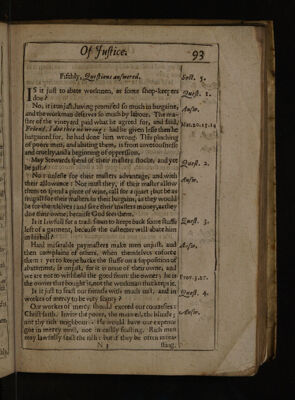 Of Justice.
93
Fifthly, Questions answered.
Sect. 5.
IS it just to abate workmen, as some shop-keepers
doe?
Quest. 1.
No, it is unjust, having promised so much in bargaine,
Answ.
and the workman deserves so much by labour. The ma-
ster of the vineyard paid what he agreed for, and said,
Friend, I doe thee no wrong: had he given lesse then he
Mat. 20. 13. 14
bargained for, he had done him wrong. This pinching
of poore men, and abating them, is from covetousnesse
and cruelty, and a beginning of oppression.
May Stewards spend of their masters stocke, and yet
Quest. 2.
be just?
No: unlesse for their masters advantage, and with
Answ.
their allowance: Nor must they, if their master allow
them to spend a piece of wine, call for a quart; but be as
frugall for their masters in their bargains, as they would
be for themselves: and save their masters money, as they
doe their owne; because God sees them.
Is it lawfull for a tradesman to keepe back some stuffe
Quest. 3.
left of a garment, because the customer will abate him
in his bill?
Hard miserable paymasters make men unjust, and
Answ.
then complaine of others, when themselves enforce
them: yet to keepe backe the stuffe on a supposition of
abatement, is unjust, for it is none of their owne, and
we are not to withhold the good from the owner: he is
Prov. 3. 27.
the owner that bought it, not the workman that keeps it.
Is it just to feast our friends with much cost, and in
Quest. 4.
workes of mercy to be very sparing?
Our workes of mercy should exceed our courtesies:
Answ.
Christ saith, Invite the poore, the maimed, the blinde;
not thy rich neighbours: He would have our expence
goe in mercy most, not in costly feasting. Rich men
may lawfully feast the rich: but if they be often intea-
N 3
sting,